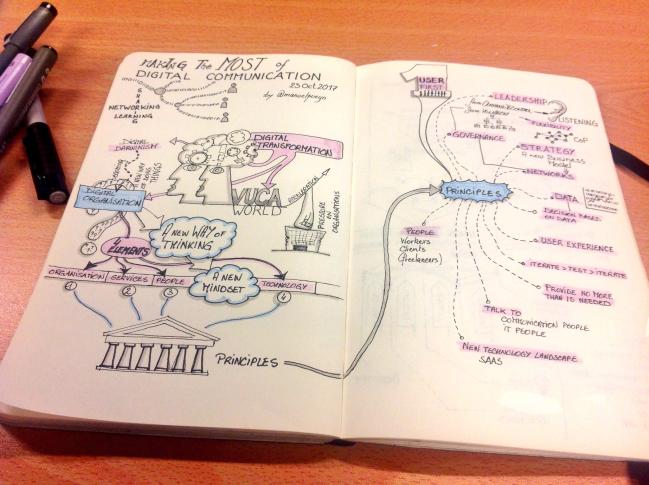 MAKING The MOST of
DIGITAL COMMUNICATION
23 Oct. 2017
by @manuelpueyo
SHARING
NETWORKING
&
LEARNING
DIGITAL
DARWINISM
DIGITAL
TRANSFORMATION
VUCA
WORLD
DIGITAL
ORGANISATION
PRESSURE
ON
ORGANISATIONS
A NEW WAY OF
THINKING
4 ELEMENTS
ORGANISATION
SERVICES
PEOPLE
A NEW
MINDSET
TECHNOLOGY
1
2
3
4
PRINCIPLES
1 USER
FIRST
LEADERSHIP
LISTENING
FLEXIBILITY
GOVERNANCE
CoP
STRATEGY
A new Business
Model
NETWORKS
PRINCIPLES
DATA
DECISION BASED
ON DATA
PEOPLE
Workers
Clients
(Freelancers)
USER EXPERIENCE
ITERATE > TEST > ITERATE
PROVIDE NO MORE
THAN IS NEEDED
TALK TO
COMMUNICATION PEOPLE
IT PEOPLE
NEW TECHNOLOGY LANDSCAPE
SAAS